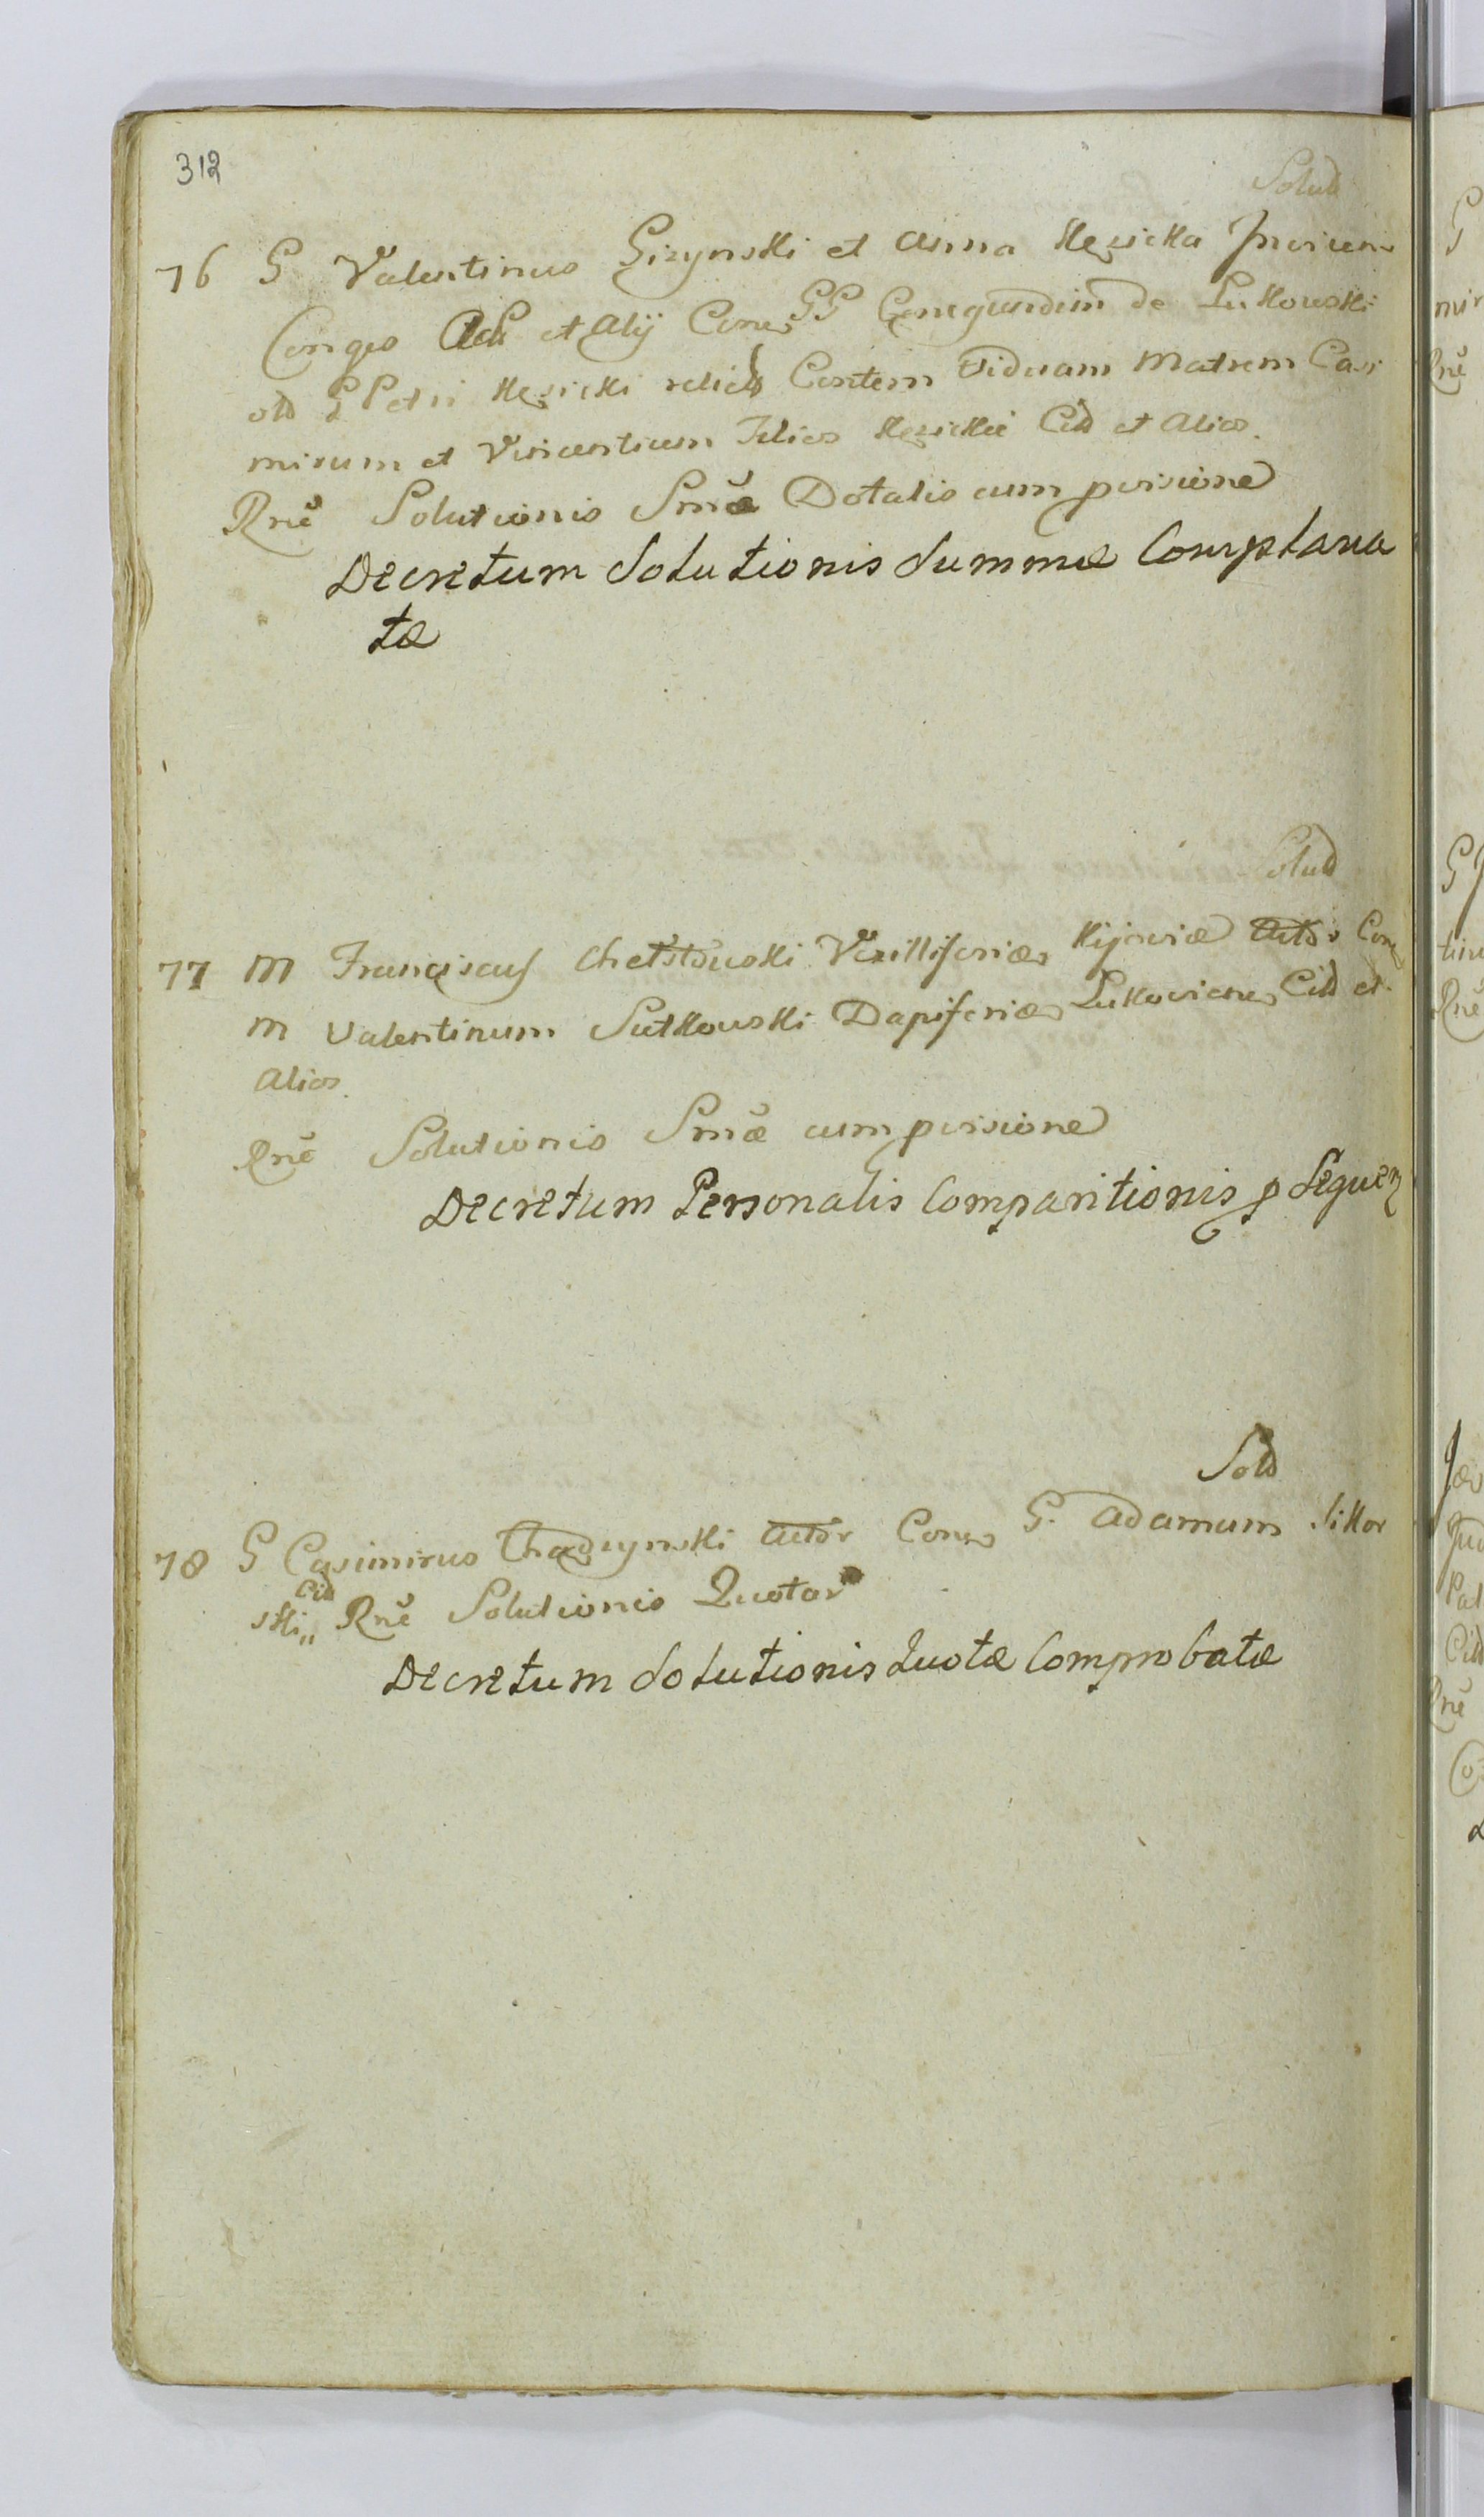 312
Solut
76 G Valentinus Gizynski et Anna Kezicka Invicem
Conges Act et Alij Cones GG Conegundim de Lukowski
olb G Petri Kezicki relict Contem Viduam Matrem Casi
mirum et Vincentium Filios Kezickie Citt et Alios.
Rnẽ Solutionis Smæ Dotalis cum pvisione
Decretum Solutionis Summæ Complana
tæ
Solut
77 M Franciscus Chełstowski Vexilliferides Kijoviæ Actor Cone
M Valentinum Sutkowski Dapiferides Lukoviens Citt et
Alios.
Rnẽ Solutionis Smæ cum pvisione
Decretum Personalis Comparitionis p Sequen
Solt
78 G Casimirus Chadzynski Actor Cones G. Adamum Sikor
ski„ Citt Rnẽ Solutionis Quotar
Decretum Solutionis Quotæ Comprobatæ